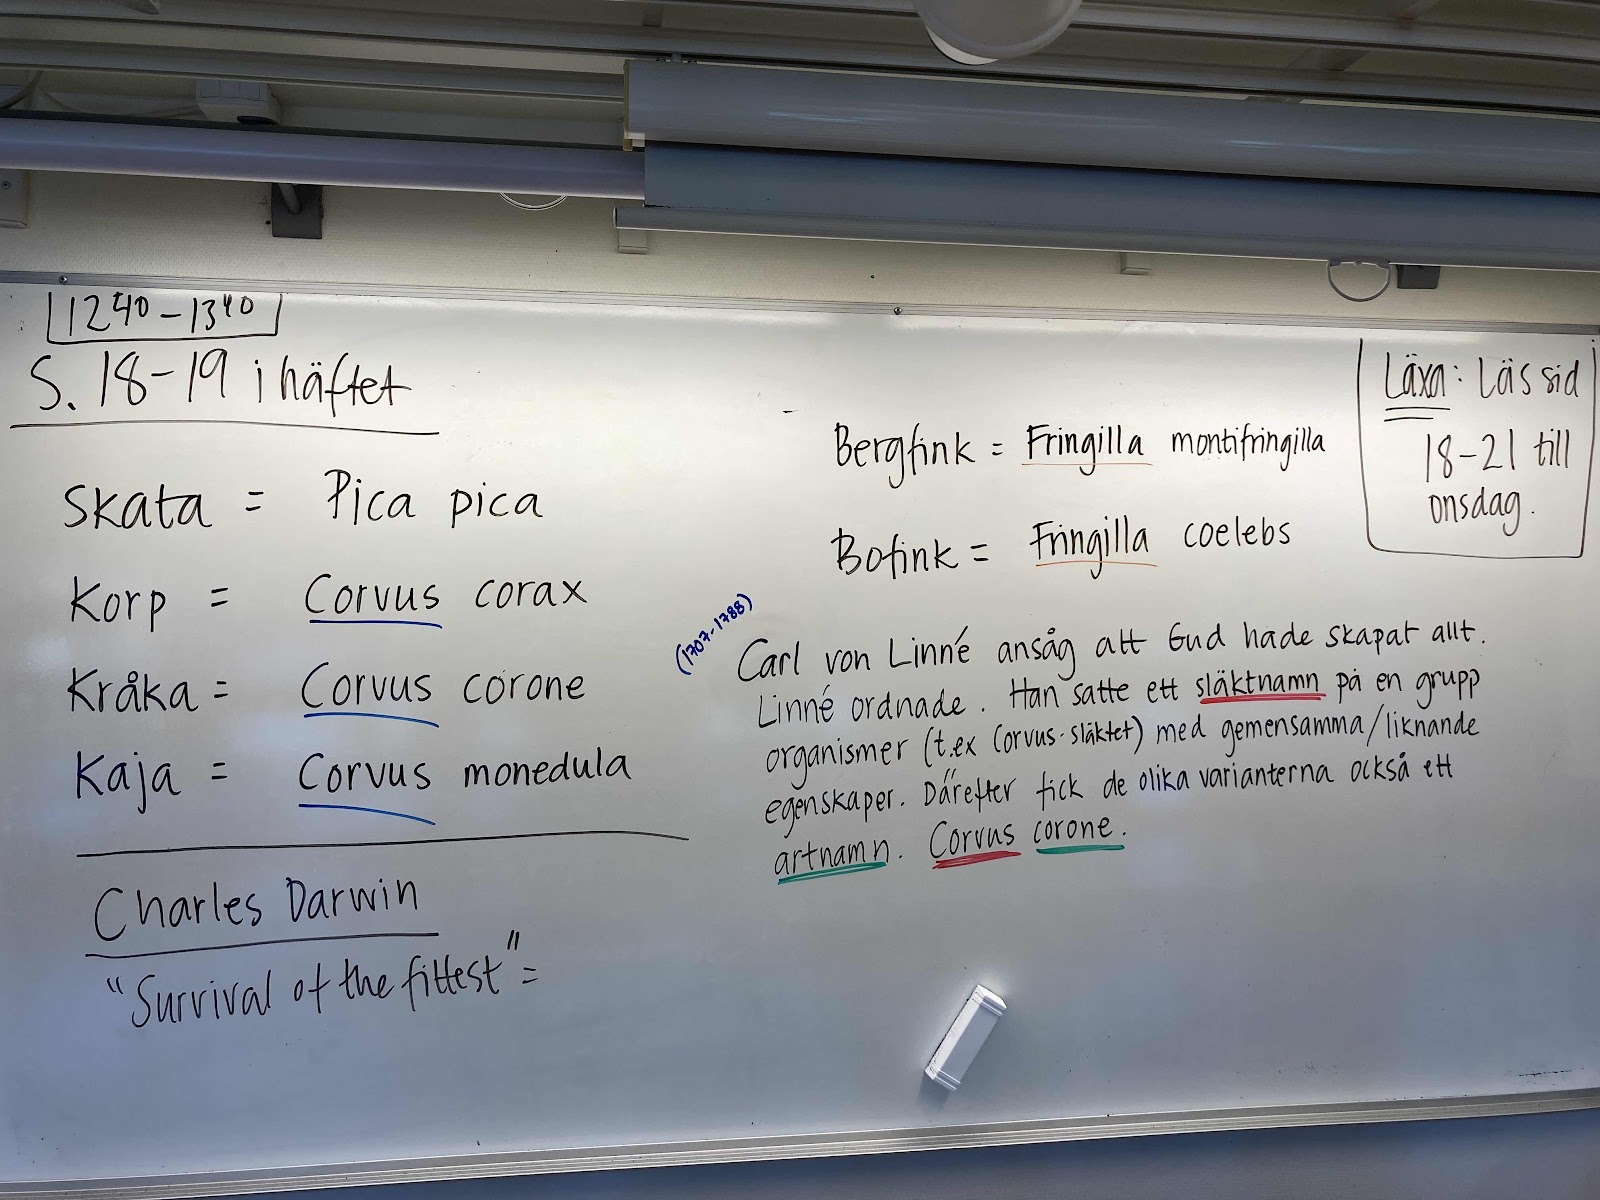 12⁴⁰ - 13⁴⁰
S. 18-19 i häftet
Skata = Pica pica
Korp = Corvus corax
Kråka = Corvus corone
Kaja = Corvus monedula
Charles Darwin
"Survival of the fittest" =
Bergfink = Fringilla montifringilla
Bofink = Fringilla coelebs
(1707-1788)
Carl von Linné ansåg att Gud hade skapat allt.
Linné ordnade. Han satte ett släktnamn på en grupp
organismer (t.ex Corvus-släktet) med gemensamma/liknande
egenskaper. Därefter fick de olika varianterna också ett
artnamn. Corvus corone.
Läxa: Läs sid
18-21 till
onsdag.